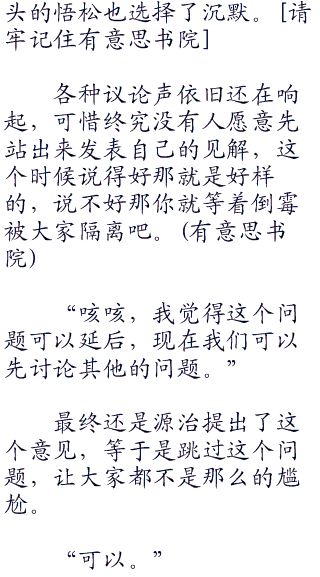 头的悟松也选择了沉默。 [请
牢记住有意思书院]
各种议论声依旧还在响
起，可惜终究没有人愿意先
站出来发表自己的见解，这
个时候说得好那就是好样
的，说不好那你就等着倒霉
被大家隔离吧。 (有意思书
院)
“咳咳，我觉得这个问
题可以延后，现在我们可以
先讨论其他的问题。”
最终还是源治提出了这
个意见，等于是跳过这个问
题，让大家都不是那么的尴
尬。
“可以。”